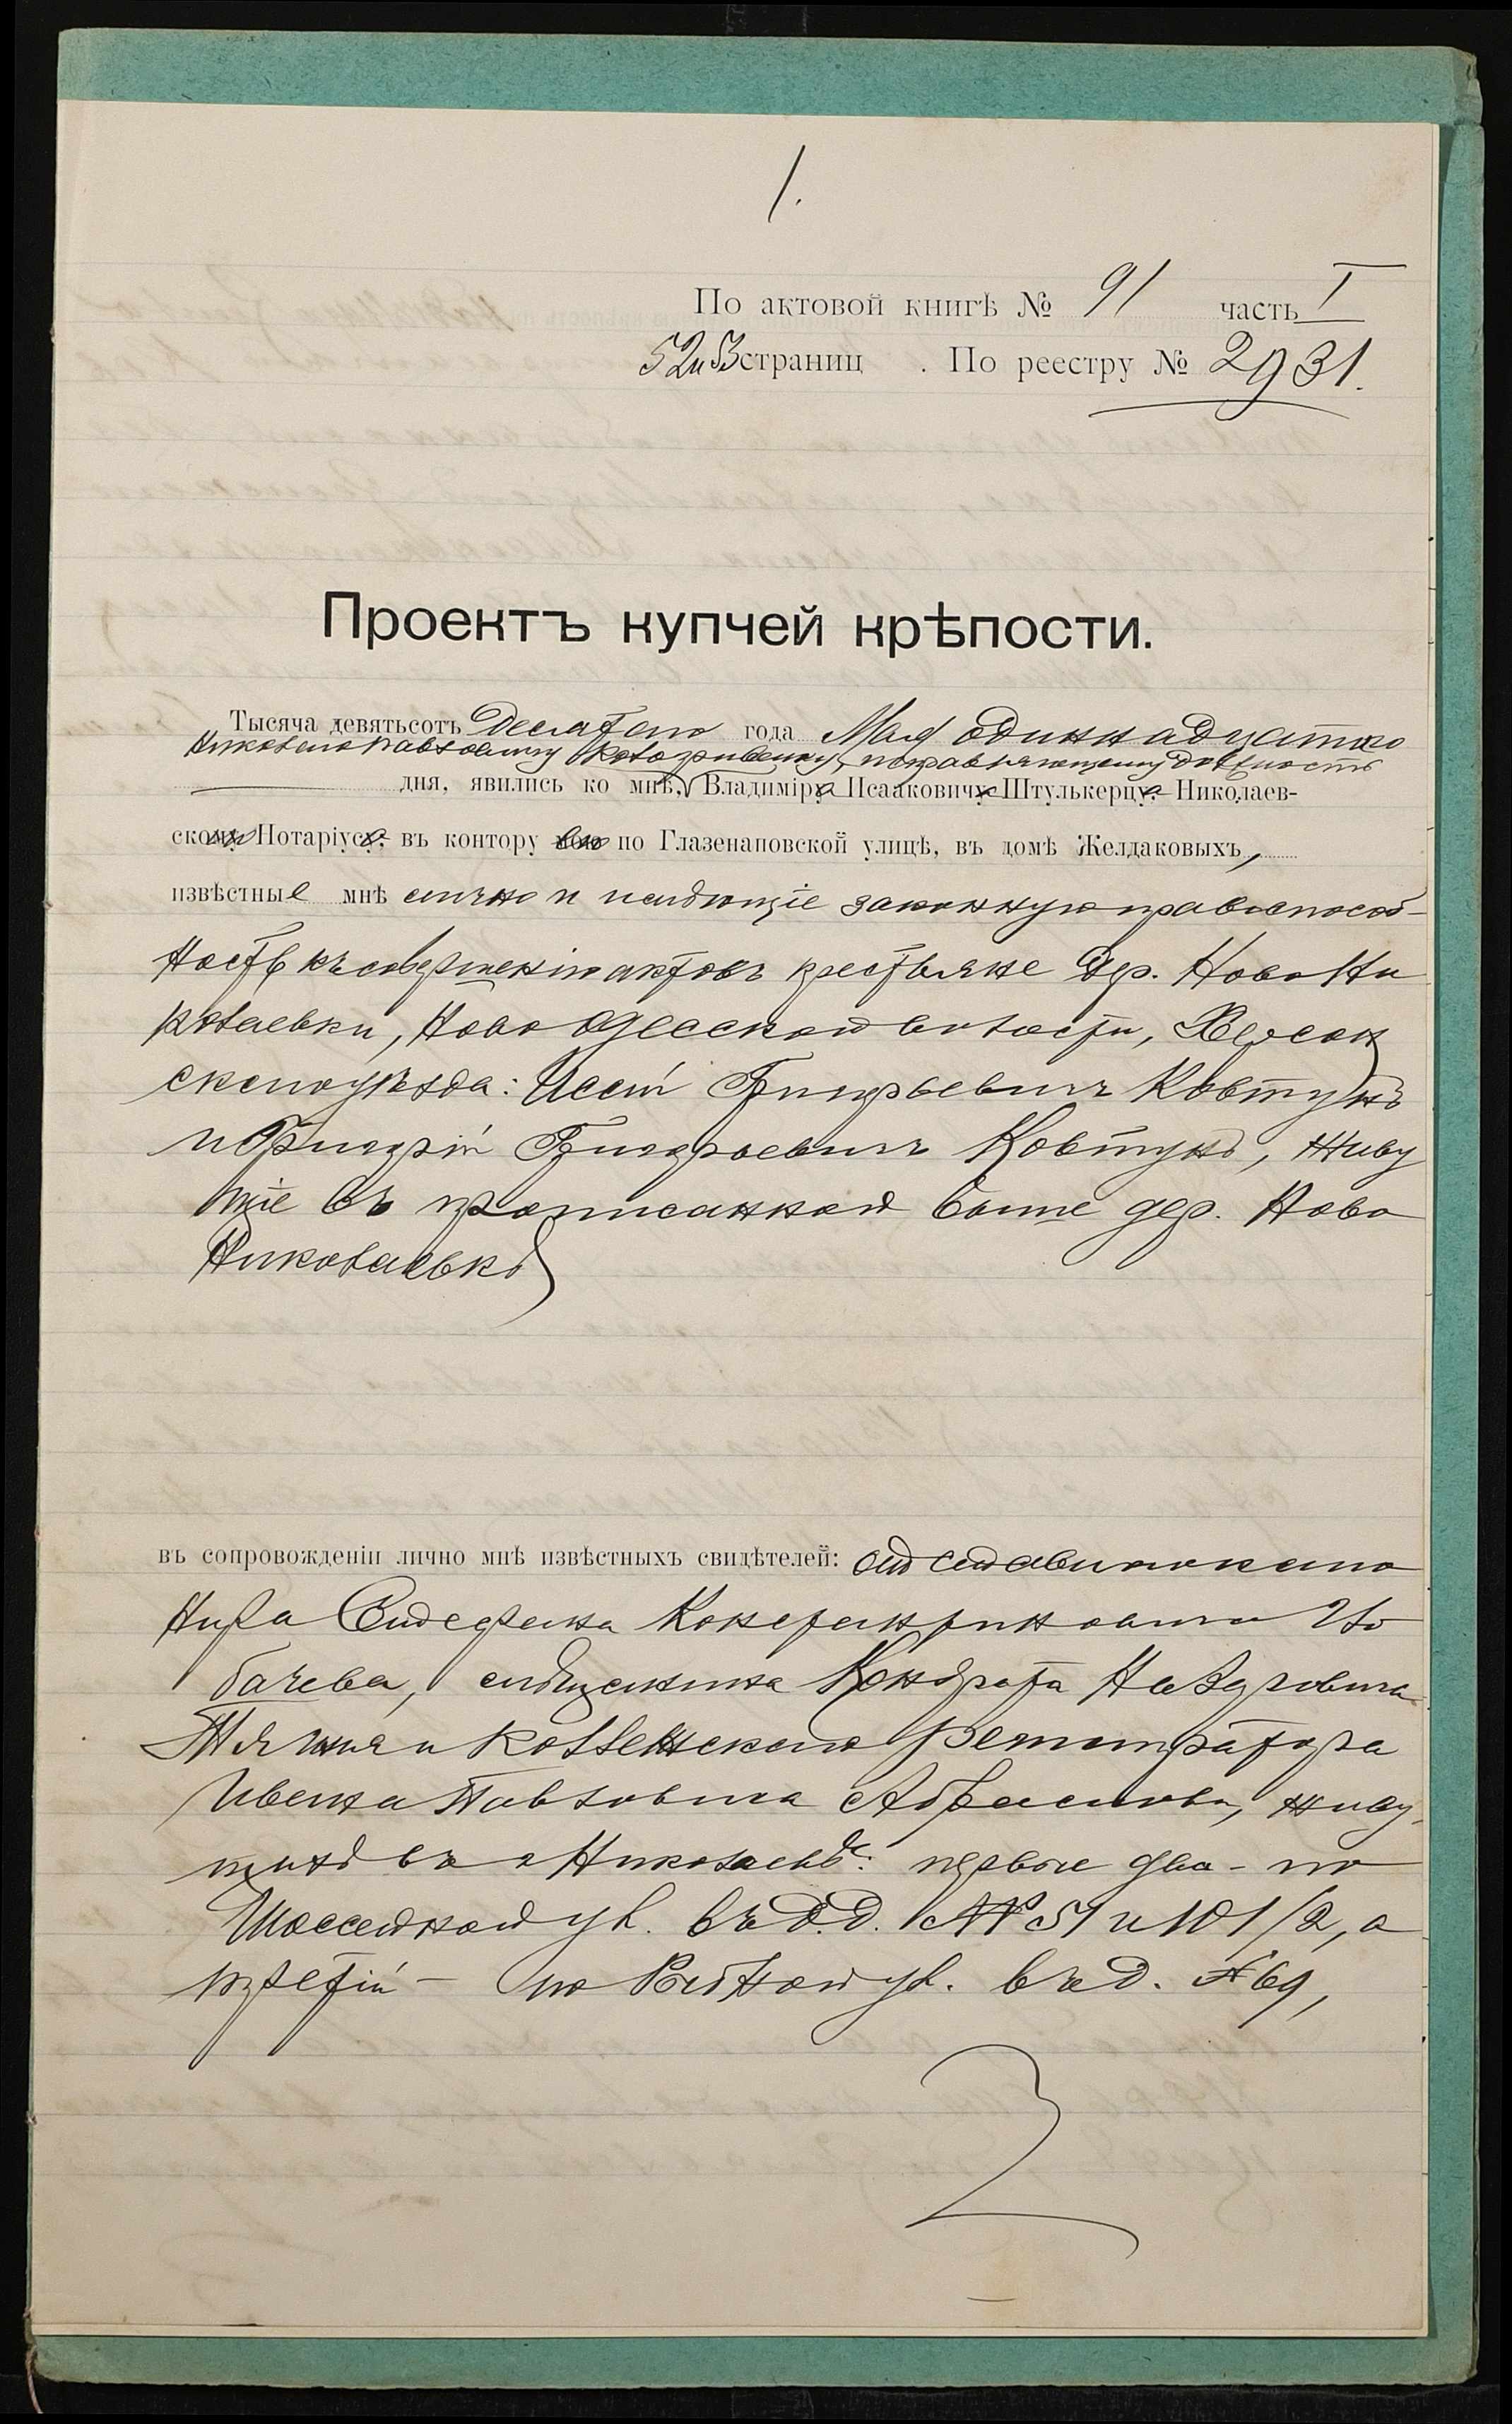 1.
По актовой книгѣ № 91 часть I
52 и 53 страниц . По реестру № 2931.
Проектъ купчей крѣпости.
Тысяча девятьсотъ десятаго года Мая одиннадцатаго
Николаю Павловичу исправляющему должность
дня, явились ко мнѣ, Владиміра Исааковича Штулькерца Николаев-
скаго Нотаріуса, въ контору его по Глазенаповской улицѣ, въ домѣ Желдаковыхъ,
извѣстные мнѣ лично и имѣющіе законную правоспособ-
ность къ совершенію актовъ крестьяне дер. Ново Ни
колаевки, Ново Одесской волости, Херсон
скаго уѣзда: Исай Григорьевичъ Ковтунъ
и Григорій Григорьевичъ Ковтунъ, живу
щіе въ прописанной выше дер. Ново
Николаевкѣ
въ сопровожденіи лично мнѣ извѣстныхъ свидѣтелей:
Константиновича
бачева, мѣщанина Кондрата Назаровича
и коллежскаго регистратора
Ивана Павловича Абрамова, живу-
щихъ въ г. Николаевѣ: первые два - по
Шоссейной ул. въ д.д. №№ 51 и 101/2, а
третій - по Рыбной ул. въ д. № 69,